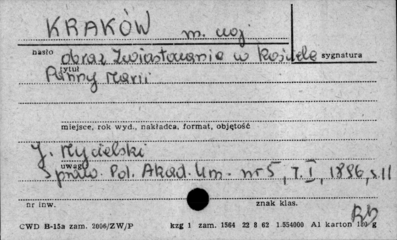 KRAKÓW m. woj.
hasło
obraz Zwiastowania w Kościele
sygnatura
tytuł
Panny Marii
miejsce, rok wyd., nakładca, format, objętość
J. Mycielski
uwagi
Spraw. Pol. Akad. Um. nr 5, T. I, 1896, s. 11
nr inw.
znak klas.
CWD B-15a zam. 2006/ZW/P kzg 1 zam. 1564 22 8 62 1.554000 A1 karton 180 g